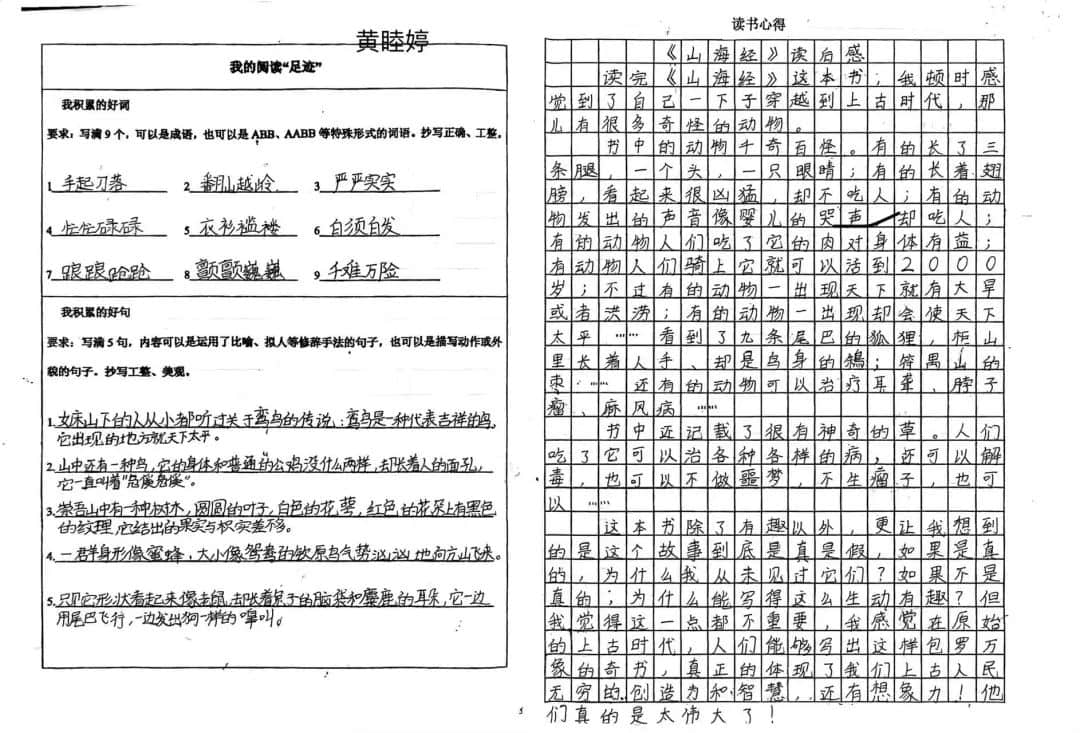 黄睦婷
我的阅读“足迹”
我积累的好词
要求：写满9个，可以是成语，也可以是ABB、AABB等特殊形式的词语。抄写正确、工整。
1 手起刀落 2 翻山越岭 3 严严实实
4 忙忙碌碌 5 衣衫褴褛 6 白须白发
7 踉踉跄跄 8 颤颤巍巍 9 千难万险
我积累的好句
要求：写满5句，内容可以是运用了比喻、拟人等修辞手法的句子，也可以是描写动作或外
貌的句子。抄写工整、美观。
1.女床山下的人从小都听过关于鸾鸟的传说：鸾鸟是一种代表吉祥的鸟，
它出现的地方就天下太平。
2.山中还有一种鸟，它的身体和普通的公鸡没什么两样，却长着人的面孔，
它一直叫着“凫徯凫徯”。
3.崇吾山中有一种树木，圆圆的叶子，白色的花萼，红色的花朵上有黑色
的纹理，它结出的果实与枳实差不多。
4.一群身形像蜜蜂，大小像鸳鸯的钦原鸟气势汹汹地向方山飞来。
5.只见它形状看起来像老鼠，却长着兔子的脑袋和麋鹿的耳朵，它一边
用尾巴飞行，一边发出狗一样的嗥叫。
读书心得
《山海经》读后感
读完《山海经》这本书；我顿时感
觉到了自己一下子穿越到上古时代，那
儿有很多奇怪的动物。
书中的动物千奇百怪。有的长了三
条腿，一个头，一只眼睛；有的长着翅
膀，看起来很凶猛，却不吃人；有的动
物发出的声音像婴儿的哭声 却吃人；
有的动物人们吃了它的肉对身体有益；
有动物人们骑上它就可以活到2000
岁；不过有的动物一出现天下就有大旱
或者洪涝；有的动物一出现却会使天下
太平……看到了九条尾巴的狐狸，柜山
里长着人手、却是鸟身的鴸；符禺山的
枣……还有的动物可以治疗耳聋、脖子
瘤、麻风病……
书中还记载了很有神奇的草。人们
吃了它可以治各种各样的病，还可以解
毒，也可以不做噩梦，不生瘤子，也可
以……
这本书除了有趣以外，更让我想到
的是这个故事到底是真是假，如果是真
的，为什么我从未见过它们？如果不是
真的；为什么能写得这么生动有趣？但
我觉得这一点都不重要，我感觉在原始
的上古时代，人们能够写出这样包罗万
象的奇书，真正的体现了我们上古人民
无穷的创造为和智慧，还有想象力！他
们真的是太伟大了！